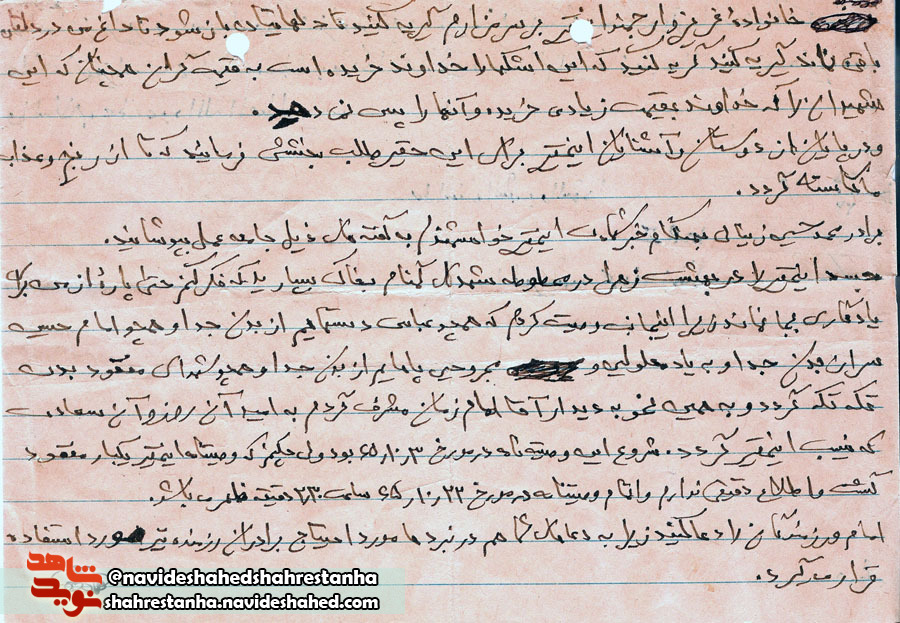 خانواده عزیز و ارجمند این حقیر بر سر مزارم گریه کنید تا دلهایتان باز شود تا داغی در دلتان
باقی نماند گریه کنید گریه کنید که این اشکها را خداوند خریده است به قیمت گران همچنان که این
شهیدان را که خداوند بقیمت زیادی خریده و آنها را پس نمی دهد.
و در پایان از دوستان و آشنایان اینحقیر برای این حقیر طلب بخشش فرمائید که تا از رنج و عذاب
ما کاسته گردد.
برادر محمد حسین زینالی بهنگام خبر شهادت اینحقیر خواهشمندم به گفته های ذیل جامه عمل بپوشانید.
جسد اینحقیر را در بهشت زهرا در محوطه شهدای گمنام بخاک بسپارید که فکر کنم حتی پاره از من برای
یادگاری بجا نماند زیرا اینجانب وصیت کردم که همچو عباس دستهایم از بدن جدا و همچو امام حسین
سر از بدن جدا و به یاد معلولین و مجروحین پاهایم از بدن جدا و همچو شهدای مفقود بدن
تکه تکه گردد و به همین نحو به دیدار آقا امام زمان مشرف گردم به امید آن روز و آن سعادت
که نصیب اینحقیر گردد. شروع این وصیتنامه در مورخ ۶۵/۱۰/۳ بود ولی چکنم که وصیتنامه اینحقیر یکبار مفقود
گشت و اطلاع دقیقی ندارم و اتمام وصیتنامه در مورخ ۶۵/۱۰/۲۲ ساعت ۲/۳۰ دقیقه ظهر می باشد.
امام و رزمندگان را دعا کنید زیرا به دعای شما هم در نبرد ما مورد احتیاج برادران رزمنده نیز مورد استفاده
قرار می گیرد.
نوید شاهد
@navideshahedshahrestanha
shahrestanha.navideshahed.com